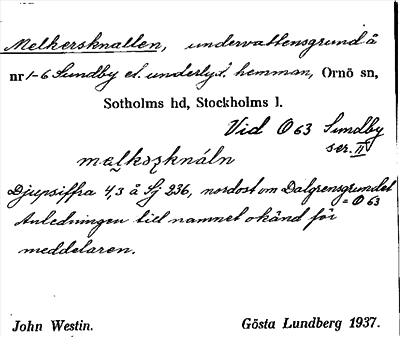 Melkersknallen, undervattensgrund å
nr 1-6 Sundby et. underlyt. hemman, Ornö sn,
Sotholms hd, Stockholms l.
Vid O 63 Sundby
ser. II
melkoʂknáln
Djupsiffra 4,3 å Sj 236, nordost om Dalgrensgrundet
= O 63
Anledningen till namnet okänd för
meddelaren.
John Westin. Gösta Lundberg 1937.